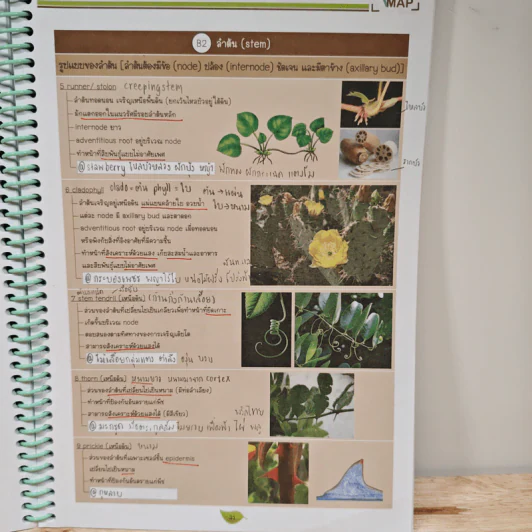 MAP
B2 ลำต้น (stem)
รูปแบบของลำต้น [ลำต้นต้องมีข้อ (node) ปล้อง (internode) ชัดเจน และมีตาข้าง (axillary bud)]
5 runner/ stolon creeping stem
ลำต้นทอดนอน เจริญเหนือพื้นดิน
มักแตกออกในแนวรัศมีรอบลำต้นหลัก
internode ยาว
adventitious root อยู่บริเวณ node
ทำหน้าที่สืบพันธุ์แบบไม่อาศัยเพศ
@ strawberry ไหลบัวหลวง ผักบุ้ง หญ้า
6 cladophyll clado = ต้น phyll = ใบ ต้น → แผ่น
ลำต้นเจริญอยู่เหนือดิน แผ่แบนคล้ายใบ อวบน้ำ ใบ → หนาม
แต่ละ node มี axillary bud และตาดอก
adventitious root อยู่บริเวณ node เมื่อทอดนอน
หรือพิงกับสิ่งที่อิงอาศัยที่มีความชื้น
ทำหน้าที่สังเคราะห์ด้วยแสง เก็บสะสมน้ำและอาหาร
และสืบพันธุ์แบบไม่อาศัยเพศ
@ กระบองเพชร พญาไร้ใบ หน่อไม้ฝรั่ง
7 stem tendril (เหนือดิน)
ส่วนของลำต้นที่เปลี่ยนไปเป็นเกลียวเพื่อทำหน้าที่ยึดเกาะ
เกิดขึ้นบริเวณ node
ตอบสนองตามทิศทางของการเจริญเติบโต
สามารถสังเคราะห์ด้วยแสงได้
@ ตำลึง องุ่น บวบ
8 thorn (เหนือดิน) หนาม cortex
ส่วนของลำต้นที่เปลี่ยนไปเป็นหนาม (มีท่อลำเลียง)
ทำหน้าที่ป้องกันอันตรายแก่พืช
สามารถสังเคราะห์ด้วยแสงได้ (มีสีเขียว)
@ มะกรูด เฟื่องฟ้า ไผ่
9 prickle (เหนือดิน) หนาม
ส่วนของลำต้นเฉพาะเซลล์ชั้น epidermis
เปลี่ยนไปเป็นหนาม
ทำหน้าที่ป้องกันอันตรายแก่พืช
@ กุหลาบ